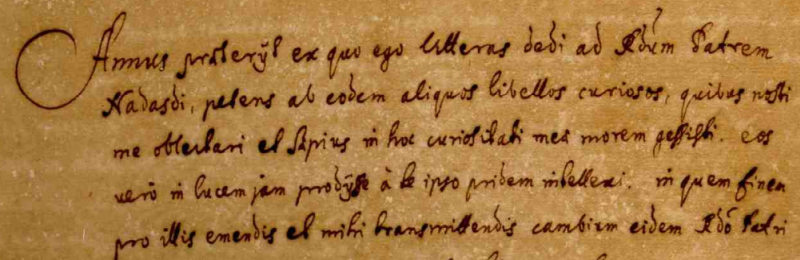 Annus præterÿt ex quo ego litteras dedi ad Rdum Patrem
Nadasdi, petens ab eodem aliquos libellos curiosos, quibus nosti
me oblectari et sæpius in hoc curiositati meæ morem gessisti. eos
verò in lucem jam prodÿsse à te ipso pridem intellexi. in quem finem
pro illis emendis et mihi transmittendis cambium eidem Rdo Patri